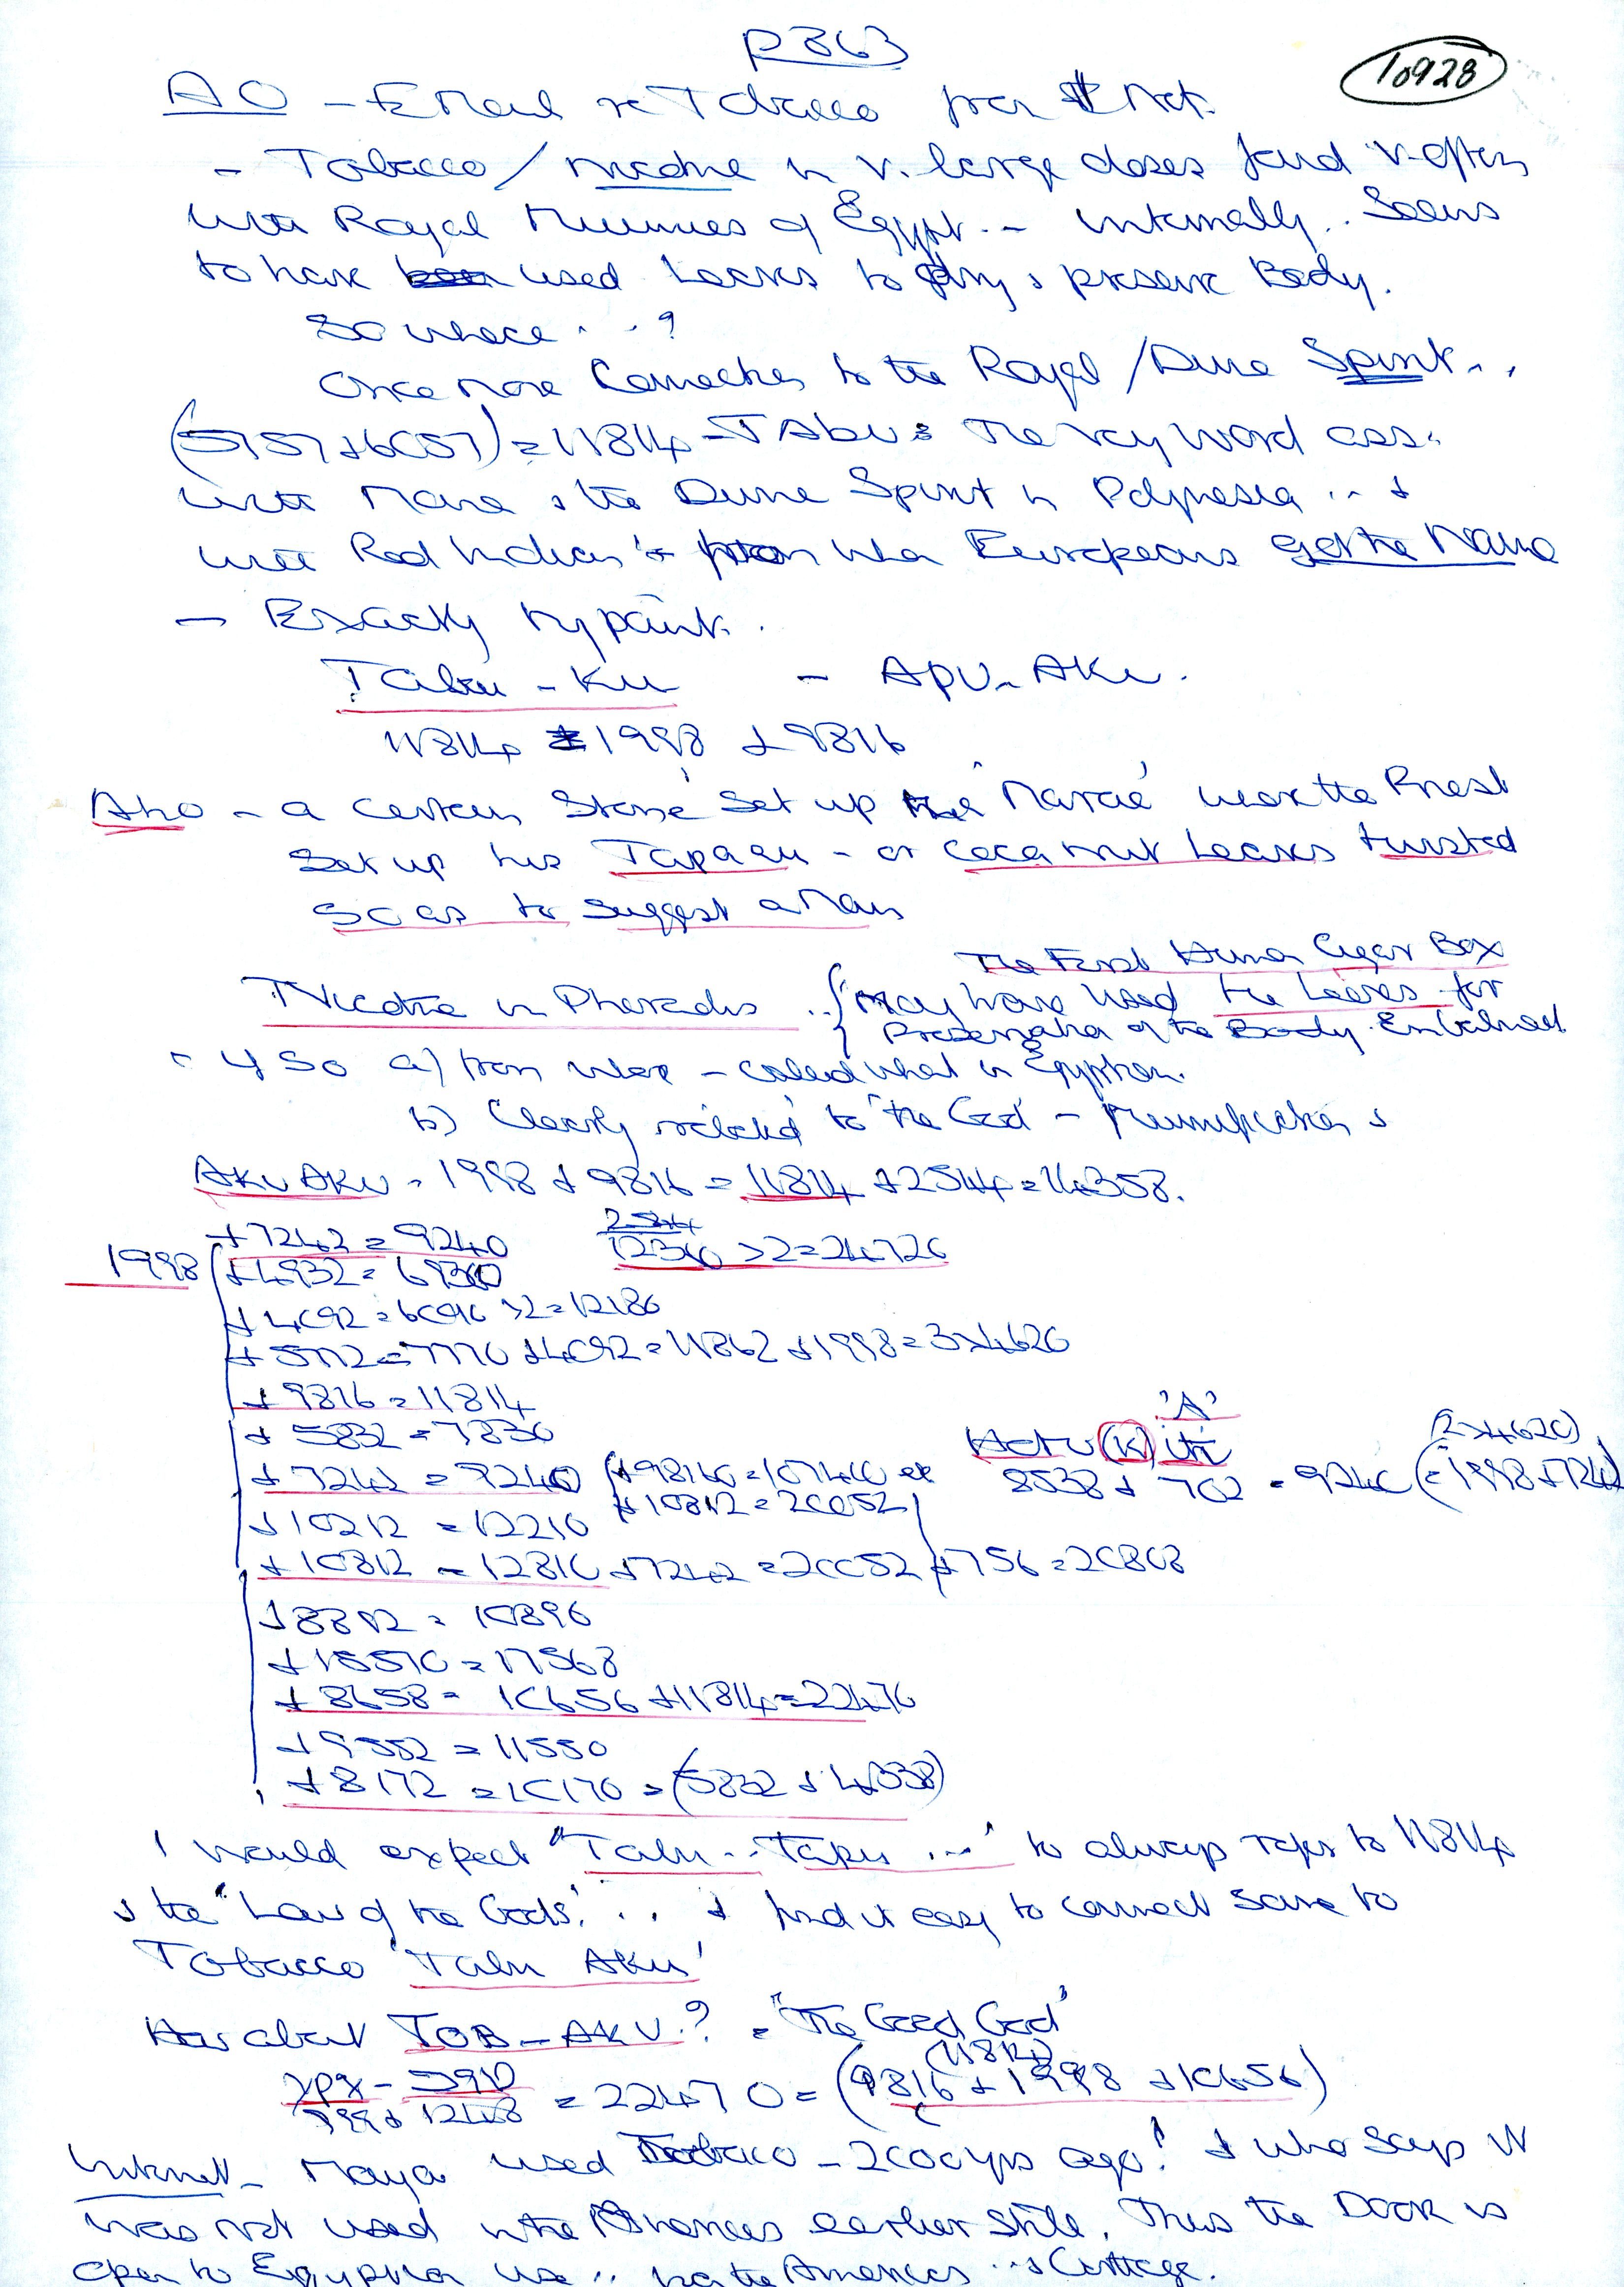 P363
10928
AO - EMail re Tobacco from Net.
- Tobacco / nicotine in v. large doses found v. often
with Royal Mummies of Egypt. - internally. Seems
to have used Leaves to dry & preserve Body.
So whence . . ?
Once more Connection to the Royal / Divine Spirit . .
(5757+6057) = 11814 - TAbu is the key word ass.
with Mana & the Divine Spirit in Polynesia . . &
with Red Indian's from when Europeans got the Name
- Exactly my point.
Tabu - Ku - APU - AKu.
11814 = 1998 + 9816
Aho - a certain Stone set up 'Marae' near the Priest
set up his Tapaau - or Coca nut Leaves twisted
so as to suggest a Man
The First Human Cigar Box
Nicotine in Pharaohs . . { may have used the Leaves for
Preservation of the Body. Embalmed
If so a) from where - called what in Egyptian.
b) Clearly related to 'the God' - Mummification &
AKu AKu - 1998 + 9816 = 11814 + 2544 = 14358.
+ 7242 = 9240
2544
1998 ( + 4932 = 6930
12360 > 2 = 24726
+ 4092 = 6090 > 2 = 12180
+ 5772 = 7770 + 4092 = 11862 + 1998 = 3x4620
+ 9816 = 11814
'A'
+ 5832 = 7830
(2x4620)
+ 7242 = 9240
8538 + 702 = 9240 (= 1998 + 7242)
+ 10812 = 20052
+ 10212 = 12210
+ 10812 = 12810 + 7242 = 20052 + 756 = 20808
+ 8892 = 10890
+ 15570 = 17568
+ 8658 = 10656 + 11814 = 22470
+ 9552 = 11550
+ 8172 = 10170 = (5832 + 4338)
I would expect "Tabu . . Tapu ...' to always refer to 11814
& the 'Law of the Gods'. . . & find it easy to connect same to
Tobacco 'Tabu AKu'
How about TOB - AKU.? = "The Good God'
(11814)
= 22470 = (9816 + 1998 + 10656)
Internet - Maya used Tobacco - 2000 yrs ago! & who says it
was not used in the Americas earlier still. Thus the Door is
open to Egyptian use . . via the Americas